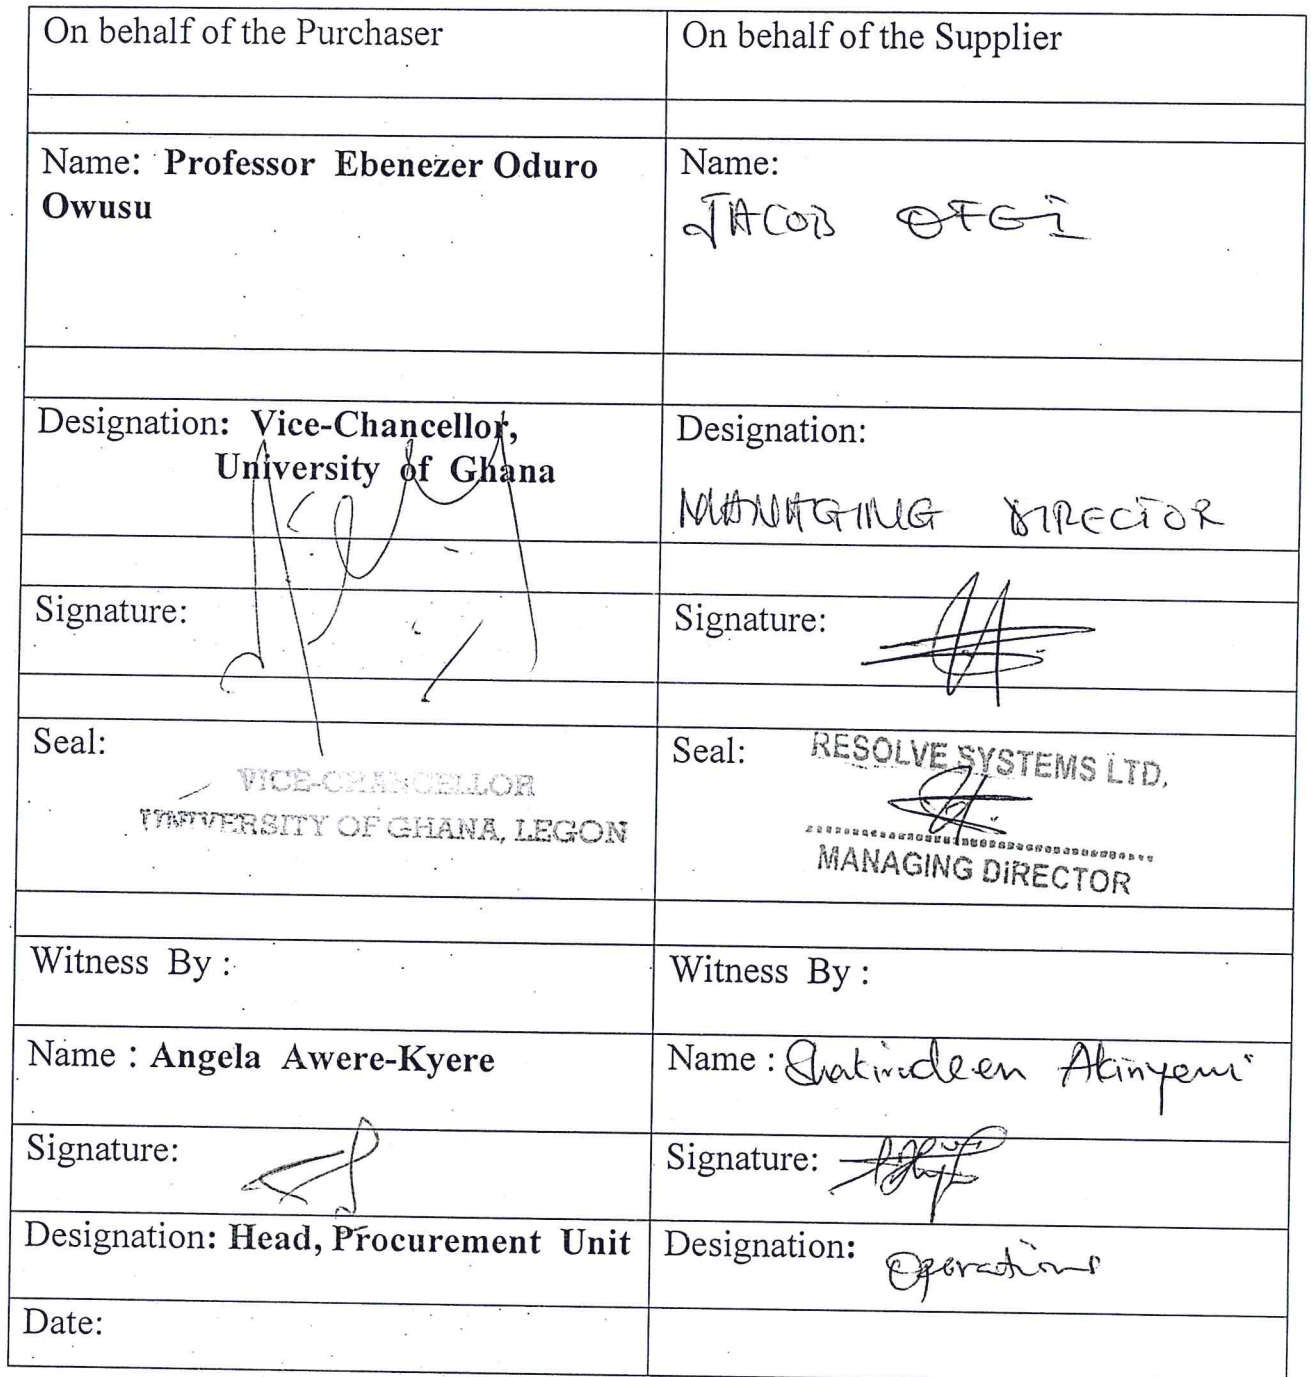 On behalf of the Purchaser
On behalf of the Supplier
Name: Professor Ebenezer Oduro
Owusu
Name:
JACOB
Designation: Vice-Chancellor,
University of Ghana
Designation:
MANAGING DIRECTOR
Signature:
Signature:
Seal:
VICE-CHANCELLOR
UNIVERSITY OF GHANA, LEGON
Seal:
RESOLVE SYSTEMS LTD.
MANAGING DIRECTOR
Witness By :
Witness By :
Name : Angela Awere-Kyere
Name : Akinyemi
Signature:
Signature:
Designation: Head, Procurement Unit
Designation: Operations
Date: